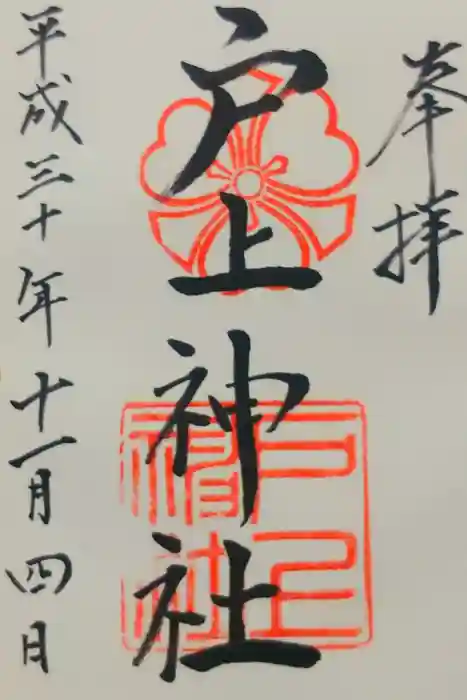 奉拝
戸上神社
戸上神社
平成三十年十一月四日